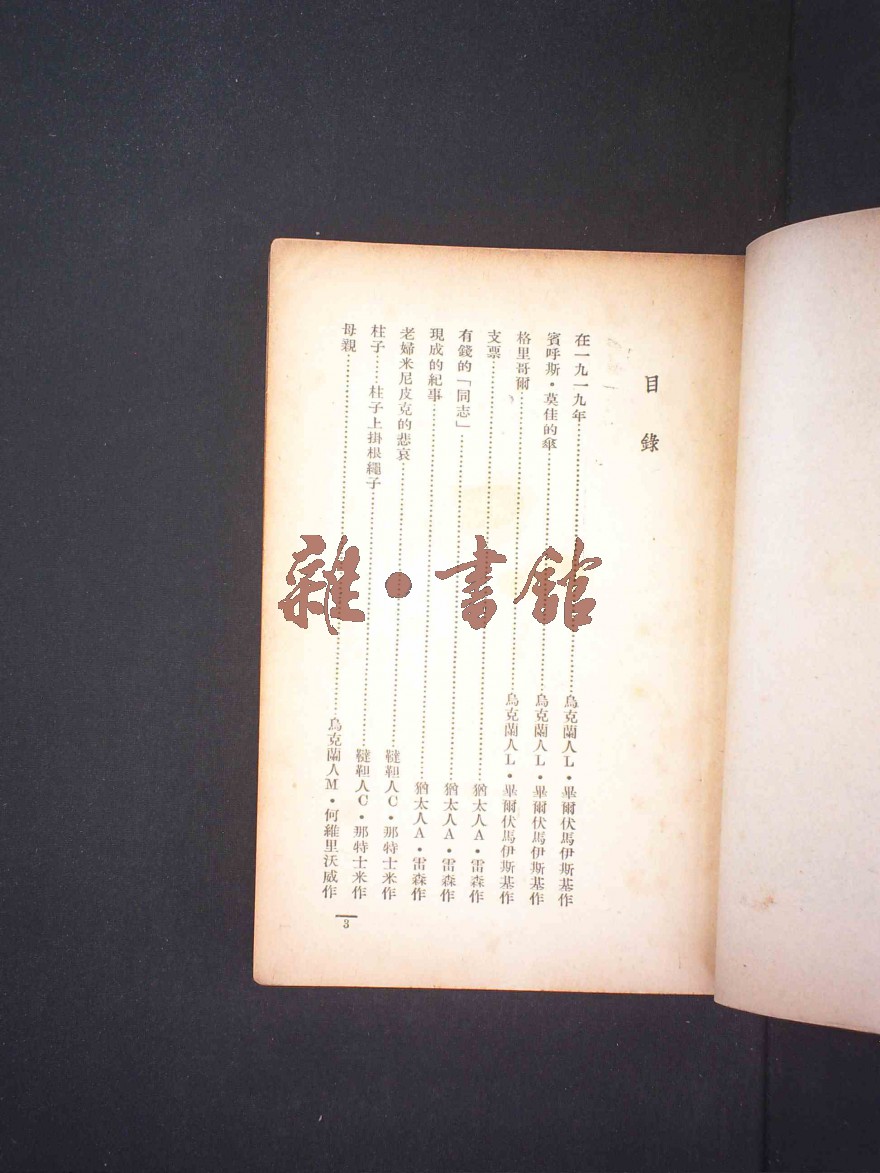 目錄
在一九一九年……烏克蘭人L·畢爾伏馬伊斯基作
賓呼斯·莫佳的傘……烏克蘭人L·畢爾伏馬伊斯基作
格里哥爾……烏克蘭人L·畢爾伏馬伊斯基作
支票……猶太人A·雷森作
有錢的「同志」……猶太人A·雷森作
現成的紀事……猶太人A·雷森作
老婦米尼皮克的悲哀……韃靼人C·那特士米作
柱子……柱子上掛根繩子……韃靼人C·那特士米作
母親……烏克蘭人M·何維里沃威作
3
雜·書館